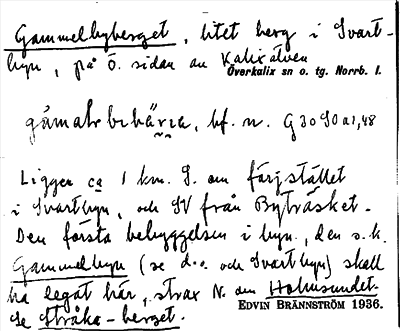 Gammelbyberget, litet berg i Svart-
byn, på ö. sidan av Kalixälven
Överkalix sn o. tg. Norrb. l.
gåmalbibärja, bf. n. G 30 S0 a 1,48
Ligger ca 1 km. S. om färjstället
i Svartbyn, och SV från Byträsket.
Den första bebyggelsen i byn, den s.k.
Gammelbyn (se d.o. och Svartbyn) skall
ha legat här, strax N. om Holmsundet.
Se Stråka-berget.
EDVIN BRÄNNSTRÖM 1936.